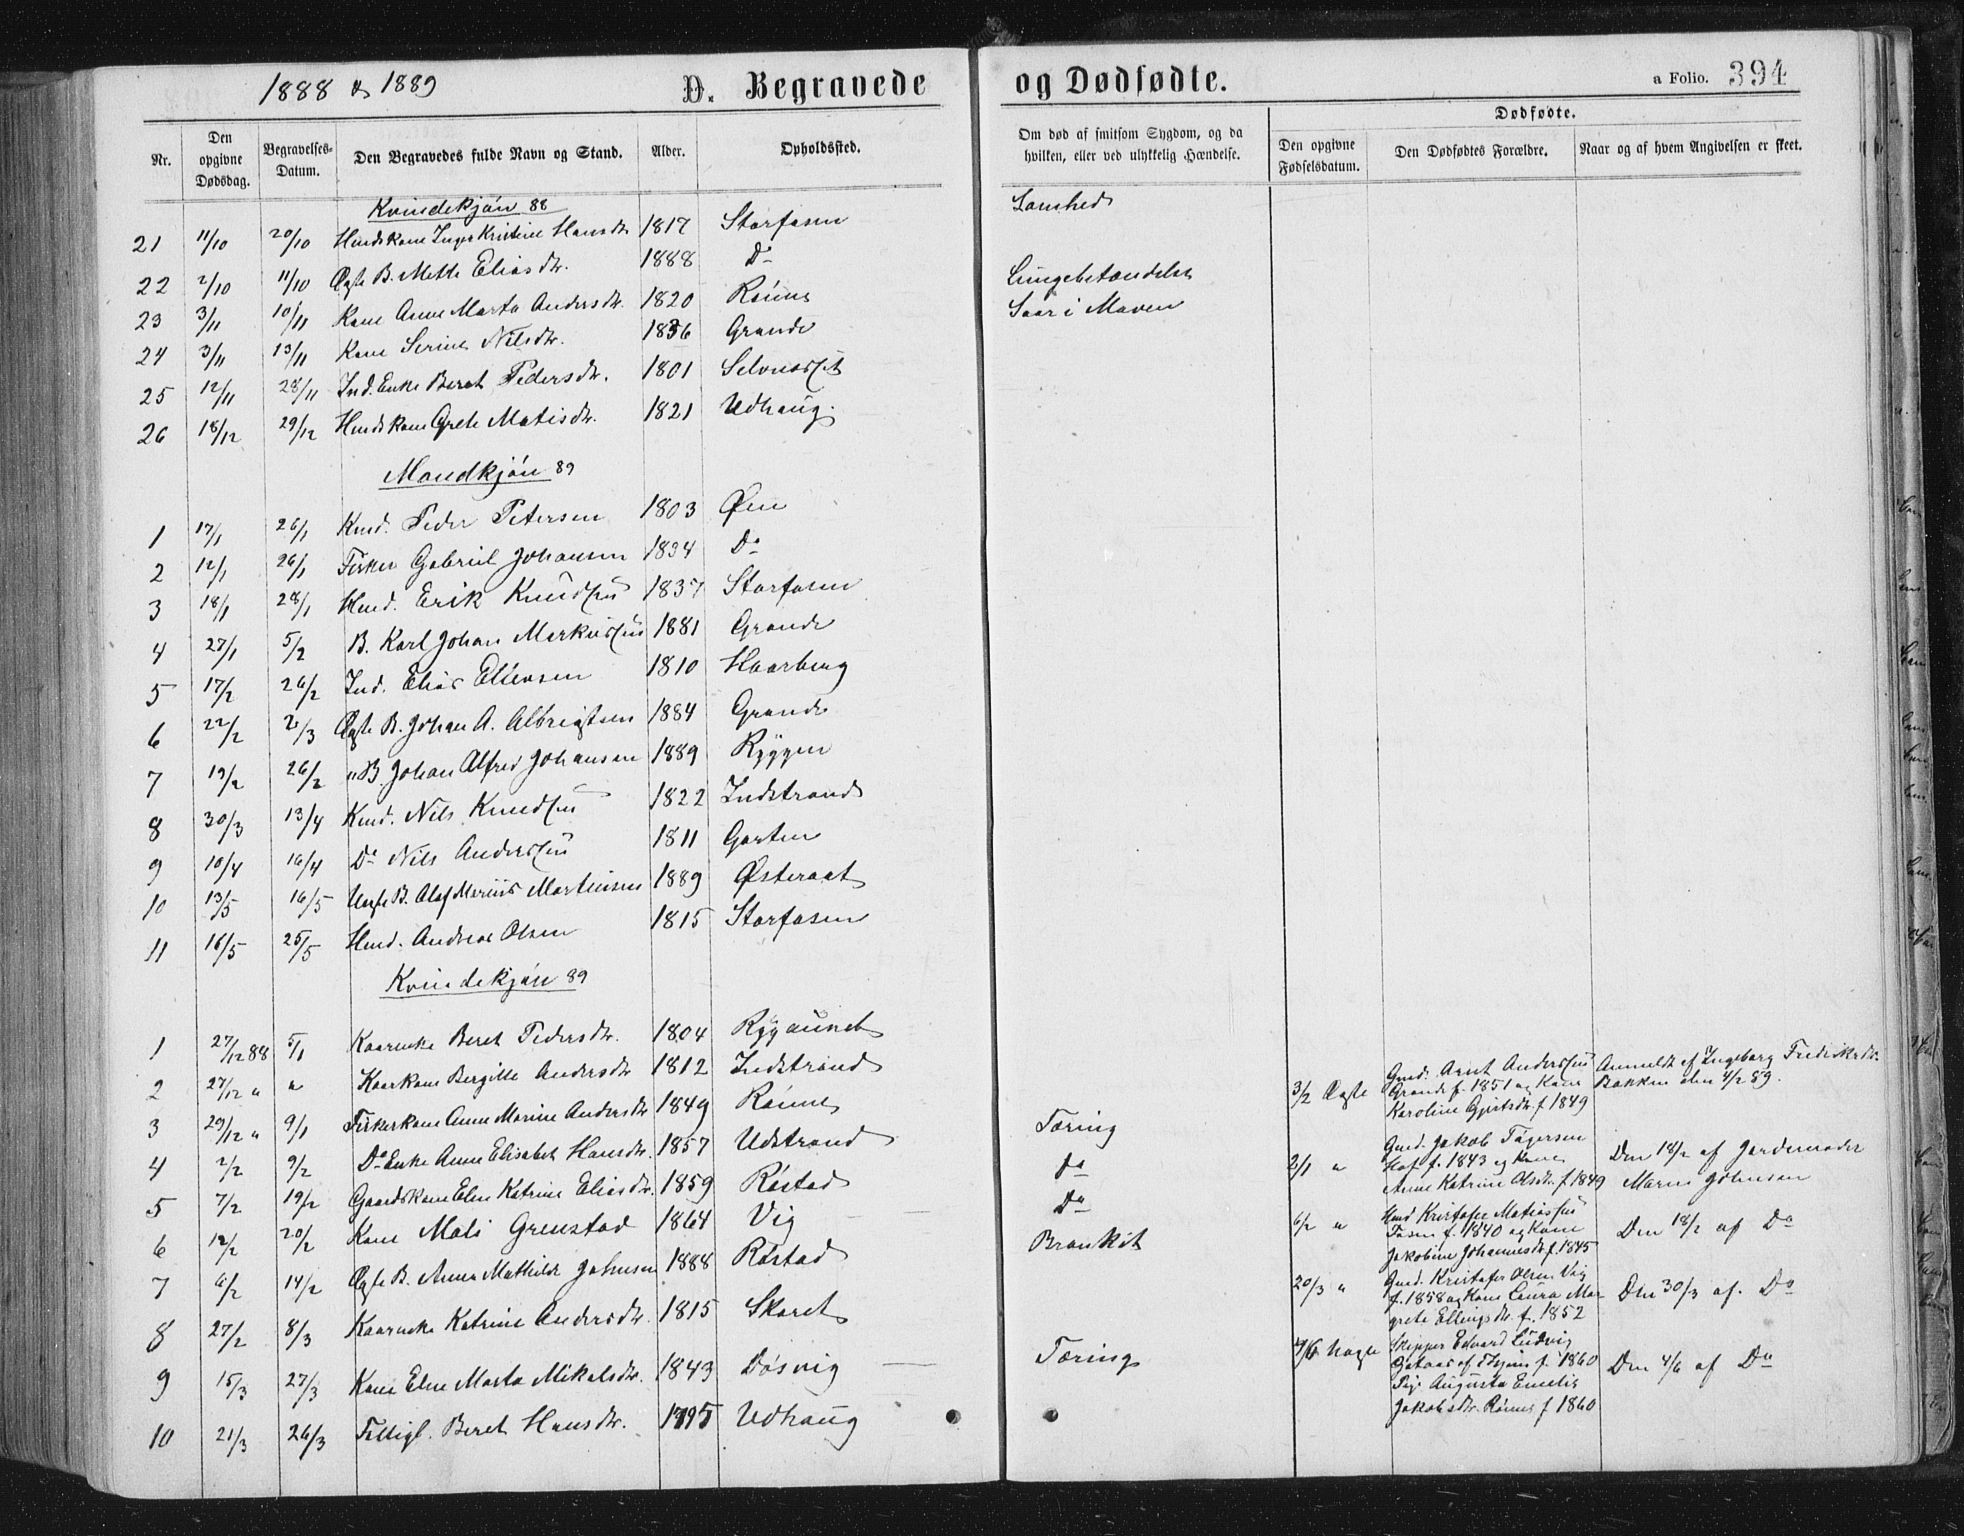 1888 & 1889
D. Begravede og Dødfødte.
a Folio. 394
Nr.
Den opgivne Dødsdag.
Begravelses-Datum.
Den Begravedes fulde Navn og Stand.
Alder.
Opholdssted.
Om død af smitsom Sygdom, og da hvilken, eller ved ulykkelig Hændelse.
Dødfødte.
Den opgivne Fødselsdatum.
Den Dødfødtes Forældre.
Naar og af hvem Angivelsen er skeet.
Kvindekjøn 88
21 11/10 20/10 Huuskone Inger Kristine Hansdr 1817 Storfosen Lamhed
22 2/10 11/10 Ægte B. Mette Eliasdr. 1888 Do
23 3/11 10/11 Kone Anne Marta Andersdr. 1820 Rönne Lungebetændelse
24 3/11 13/11 Kone Serine Nilsdr. 1836 Grande Saar i Maven
25 12/11 23/11 Ind. Enke Beret Pedersdr. 1801 Selvnæsset
26 18/12 29/12 Huuskone Grete Matisdr. 1821 Udhaug.
Mandkjön 89
1 17/1 26/1 Kaard. Peder Petersen 1803 Øen
2 12/1 26/1 Fisker Gabriel Johansen 1834 Do
3 18/1 28/1 Huusm. Erik Knudsen 1837 Storfosen
4 27/1 5/2 B. Karl Johan Markussen 1881 Grande
5 17/2 26/2 Ind. Elias Ellevsen 1810 Haarberg
6 22/2 2/3 Ægte B. Johan A. Albrigtsen 1884 Grande
7 19/2 26/2 " B. Johan Alfred Johansen 1889 Ryggen
8 30/3 13/4 Nils Knudsen 1822 Indstrand
9 10/4 16/4 Do Nils Anderssen 1811 Garten
10 13/5 16/5 Uægte B. Olaf Marius Martinsen 1889 Østeraat
11 16/5 25/5 Andreas Olsen 1815 Storfosen
Kvindekjøn 89
1 27/12 88 5/1 Kaarenke Beret Pedersdr. 1804 Rygaunet
2 27/12 " " Kaarkone Bergitte Andersdr 1812 Indstrand
3 29/12 " 9/1 Fiskerkone Anne Marine Andersdr 1849 Rönne Tæring
4 2/2 9/2 Do Enke Anne Elisabet Hansdr. 1857 Udstrand do
5 7/2 19/2 Gaardskone Elen Katrine Eliasdr. 1859 Röstad Do
6 12/2 20/2 Kone Mali Grenstad 1864 Vig Bronkit
7 6/2 14/2 Ægte B. Anna Mathilde Johnsen 1888 Röstad
8 27/2 8/3 Kaarenke Katrine Andersdr. 1815 Skaret
9 15/3 27/3 Kone Elen Marta Mikalsdr. 1843 Døsvig Tæring
10 21/3 26/3 Fattigl. Beret Hansdr. 1795 Udhaug
3/2 Ægte
Gmd. Arnt Anderssen
Grande f. 1851 og Kone
Karoline Gjertsdr. f 1849
Anmeldt af Ingeborg Fredriksdr.
Bakken den 4/2 89.
2/1 "
Gmd. Jakob
Hof f. 1843 og Kone
Anne Katrine Olsdr. f 1849
Den 18/2 af Jordemoder
Maren Johnsen
6/2 "
Kristofer Matiassen
Fosen f. 1840 og Kone
Jakobine Johannesdr. f. 1845
Den 18/2 af Do
20/3 "
Gmd. Kristofer Olsen Vig
f. 1858 og Kone Laura Mar
grete Ellingsdr. f. 1852
Den 30/3 af. Do
4/6 Uægte
Skipper Edvard Ludvig
f. 1860
Pige Augusta Emelie
Jakobsdr. Rönne f 1860
Den 4/6 af Do